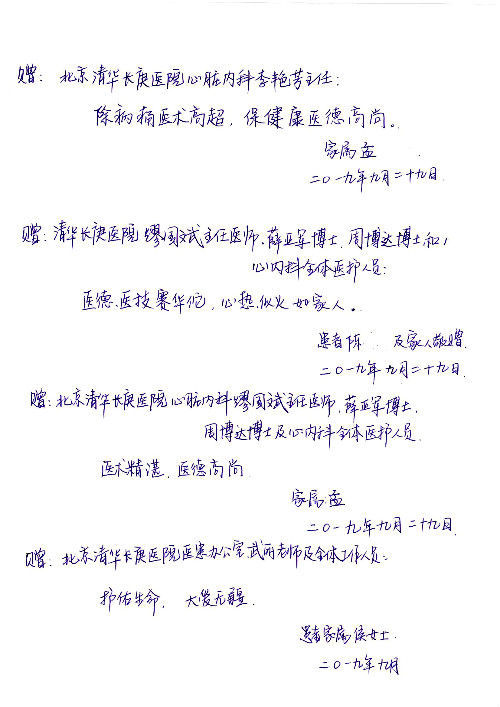 赠：北京清华长庚医院心脏内科李艳芳主任：
除病痛医术高超，保健康医德高尚。
家属孟
二〇一九年九月二十九日
赠：清华长庚医院缪国斌主任医师、薛亚军博士、周博达博士和
心内科全体医护人员：
医德、医技赛华佗，心热似火如家人。
患者陈 及家人敬赠
二〇一九年九月二十九日
赠：北京清华长庚医院心脏内科缪国斌主任医师，薛亚军博士，
周博达博士及心内科全体医护人员，
医术精湛、医德高尚
家属孟
二〇一九年九月二十九日
赠：北京清华长庚医院医患办公室武丽老师及全体工作人员：
护佑生命， 大爱无疆．
患者家属侯女士
二〇一九年九月